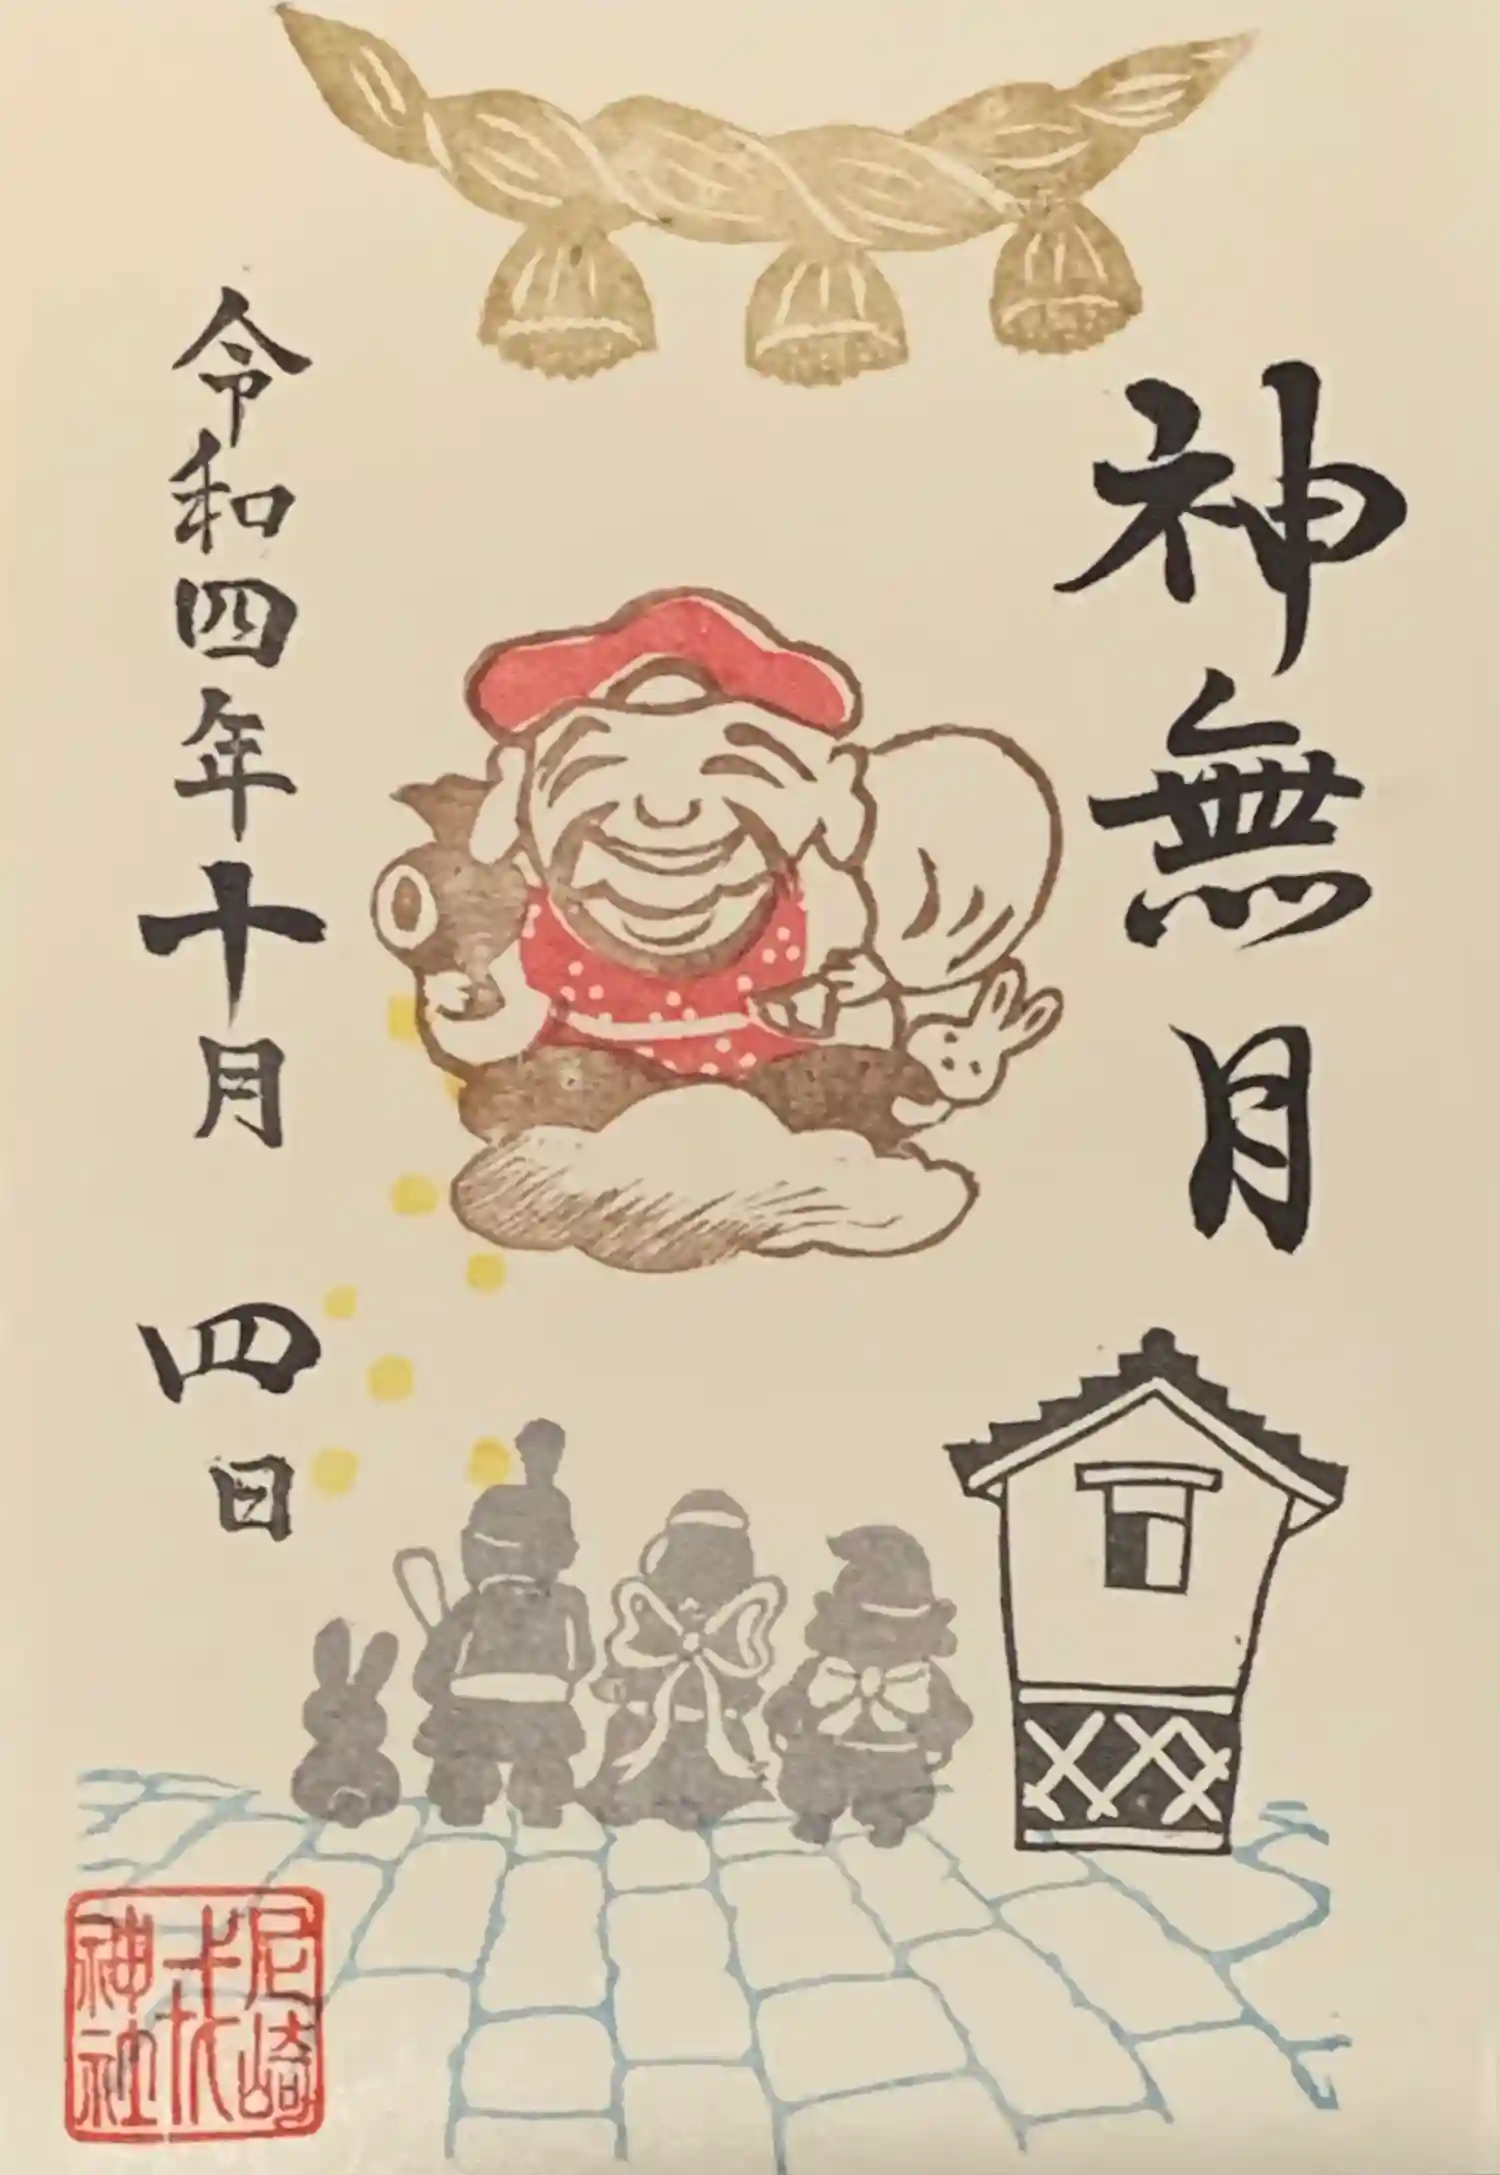 神無月
令和四年十月 四日
尼崎
戎
神社